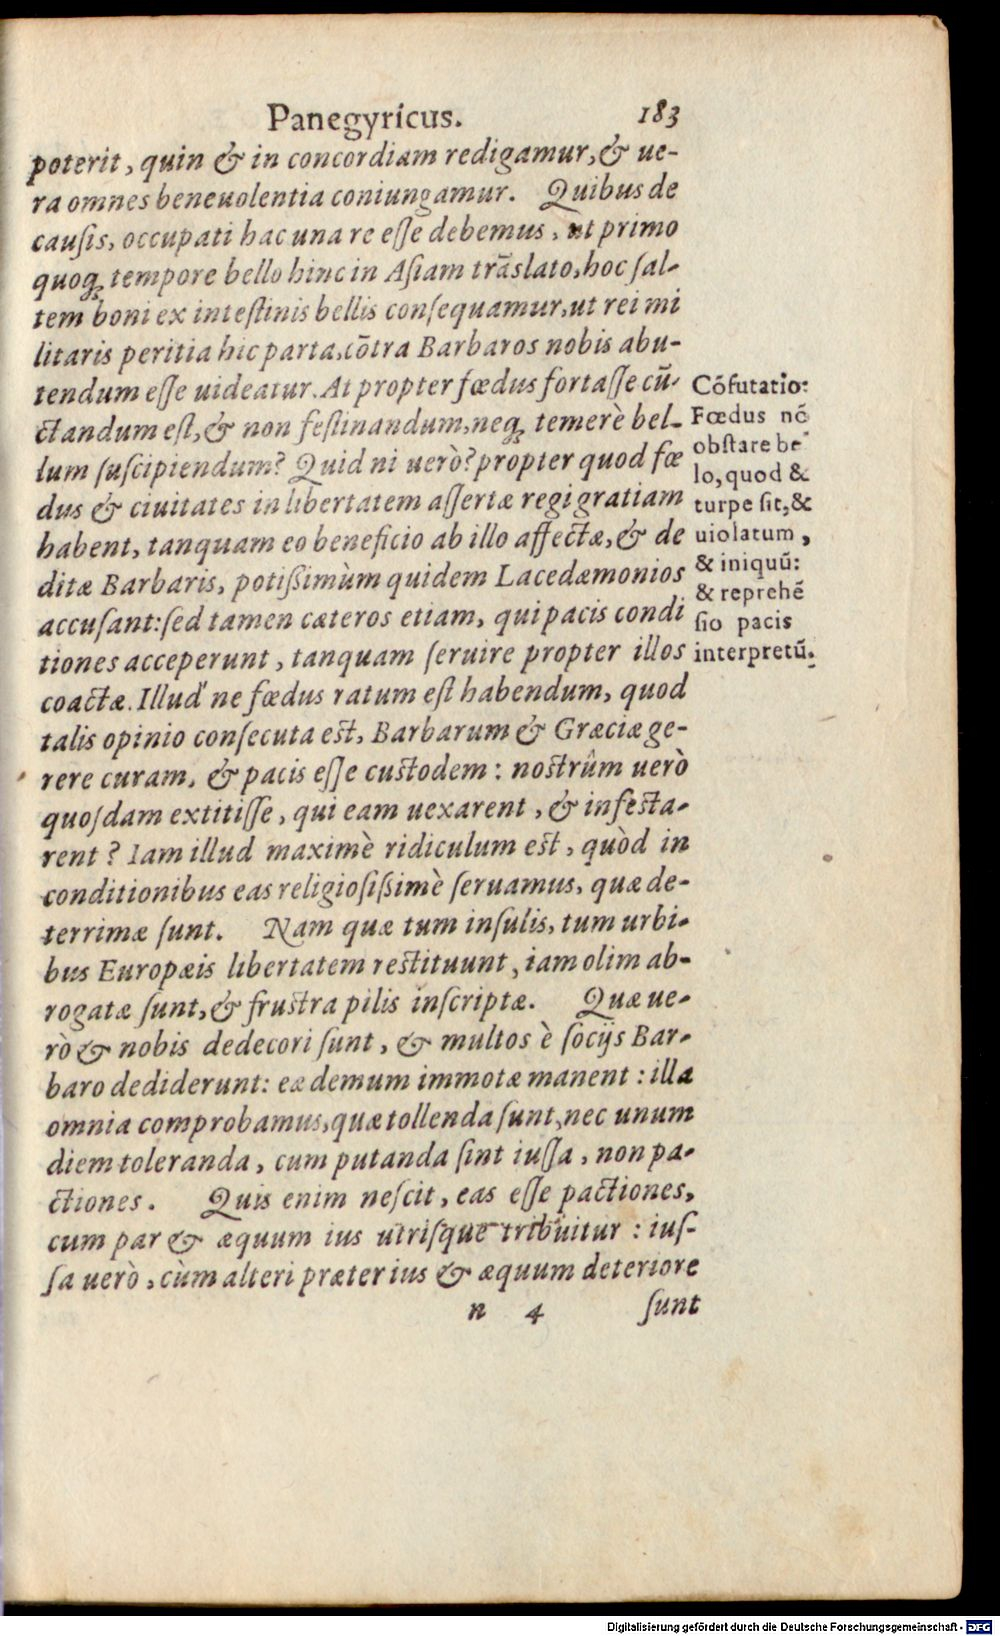 Panegyricus. 183
poterit, quin & in concordiam redigamur, & ue-
ra omnes beneuolentia coniungamur. Quibus de
causis, occupati hac una re esse debemus, ut primo
quoq; tempore bello hinc in Asiam trãslato, hoc sal-
tem boni ex intestinis bellis consequamur, ut rei mi
litaris peritia hic parta, cõtra Barbaros nobis abu-
tendum esse uideatur. At propter fœdus fortasse cũ-
ctandum est, & non festinandum, neq; temerè bel-
lum suscipiendum? Quid ni uerò? propter quod fœ
dus & ciuitates in libertatem assertæ regi gratiam
habent, tanquam eo beneficio ab illo affectæ, & de
ditæ Barbaris, potißimùm quidem Lacedæmonios
accusant: sed tamen cæteros etiam, qui pacis condi
tiones acceperunt, tanquam seruire propter illos
coactæ. Illud ne fœdus ratum est habendum, quod
talis opinio consecuta est, Barbarum & Græciæ ge-
rere curam, & pacis esse custodem: nostrûm uerò
quosdam extitisse, qui eam uexarent, & infesta-
rent? Iam illud maximè ridiculum est, quòd in
conditionibus eas religiosißimè seruamus, quæ de-
terrimæ sunt. Nam quæ tum insulis, tum urbi-
bus Europæis libertatem restituunt, iam olim ab-
rogatæ sunt, & frustra pilis inscriptæ. Quæ ue-
rò & nobis dedecori sunt, & multos è socijs Bar-
baro dediderunt: eæ demum immotæ manent: illa
omnia comprobamus, quæ tollenda sunt, nec unum
diem toleranda, cum putanda sint iussa, non pa-
ctiones. Quis enim nescit, eas esse pactiones,
cum par & æquum ius utrisque tribuitur: ius-
sa uerò, cùm alteri præter ius & æquum deteriore
n 4 sunt
Cõfutatio:
Fœdus nõ
obstare be
lo, quod &
turpe sit, &
uiolatum,
& iniquũ:
& reprehẽ
sio pacis
interpretũ.
Digitalisierung gefördert durch die Deutsche Forschungsgemeinschaft - DFG